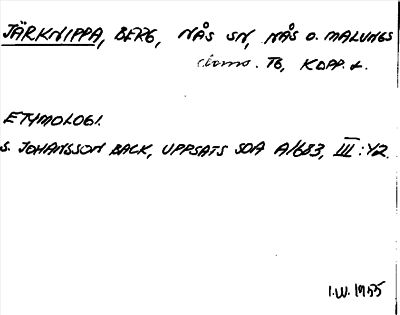 JÄRKNIPPA, BERG, NÅS SN, NÅS O. MALUNGS
doms. TB, KOPP. L.
ETYMOLOGI.
S. JOHANSSON BACK, UPPSATS SOA A1683, III:42.
I.W. 1955